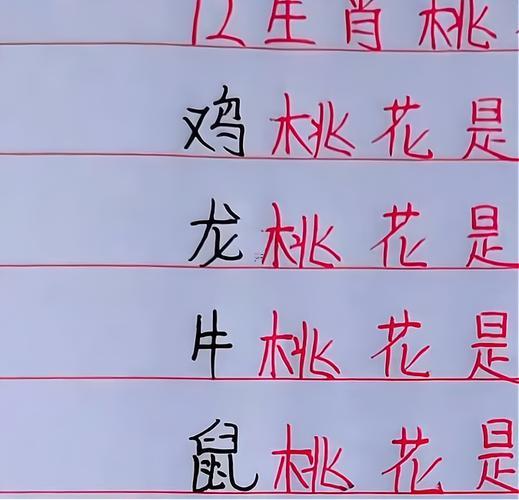 12生肖桃
鸡桃花是
龙桃花是
牛桃花是
鼠桃花是